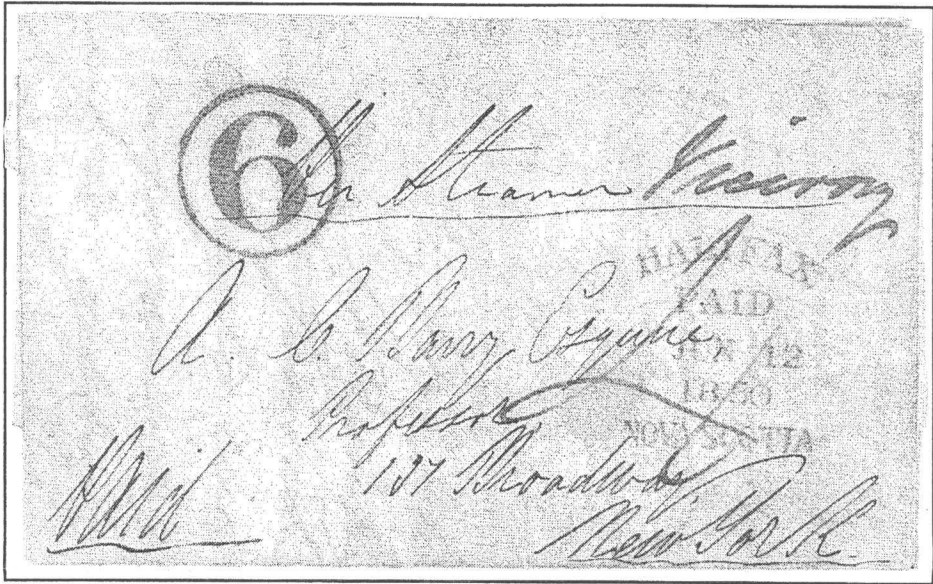 6
Per Steamer Viceroy
HALIFAX
PAID
12
1850
NOVA SCOTIA
A. C. Barry Esquire
Professor
137 Broadway
New York.
Paid